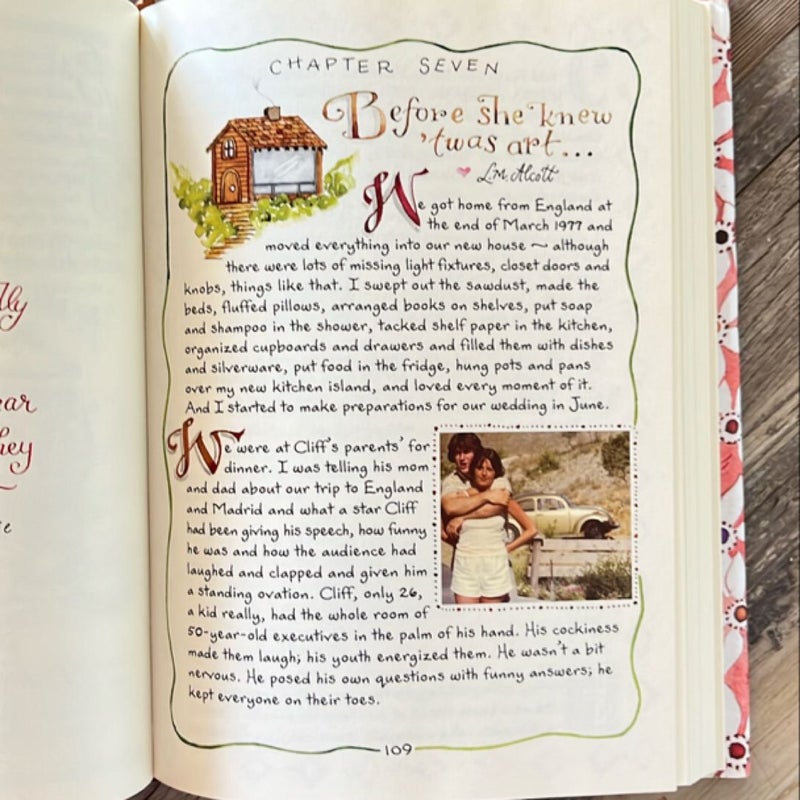 CHAPTER SEVEN
Before she knew
'twas art...
L.M. Alcott
We got home from England at
the end of March 1977 and
moved everything into our new house ~ although
there were lots of missing light fixtures, closet doors and
knobs, things like that. I swept out the sawdust, made the
beds, fluffed pillows, arranged books on shelves, put soap
and shampoo in the shower, tacked shelf paper in the kitchen,
organized cupboards and drawers and filled them with dishes
and silverware, put food in the fridge, hung pots and pans
over my new kitchen island, and loved every moment of it.
And I started to make preparations for our wedding in June.
We were at Cliff's parents' for
dinner. I was telling his mom
and dad about our trip to England
and Madrid and what a star Cliff
had been giving his speech, how funny
he was and how the audience had
laughed and clapped and given him
a standing ovation. Cliff, only 26,
a kid really, had the whole room of
50-year-old executives in the palm of his hand. His cockiness
made them laugh; his youth energized them. He wasn't a bit
nervous. He posed his own questions with funny answers; he
kept everyone on their toes.
109